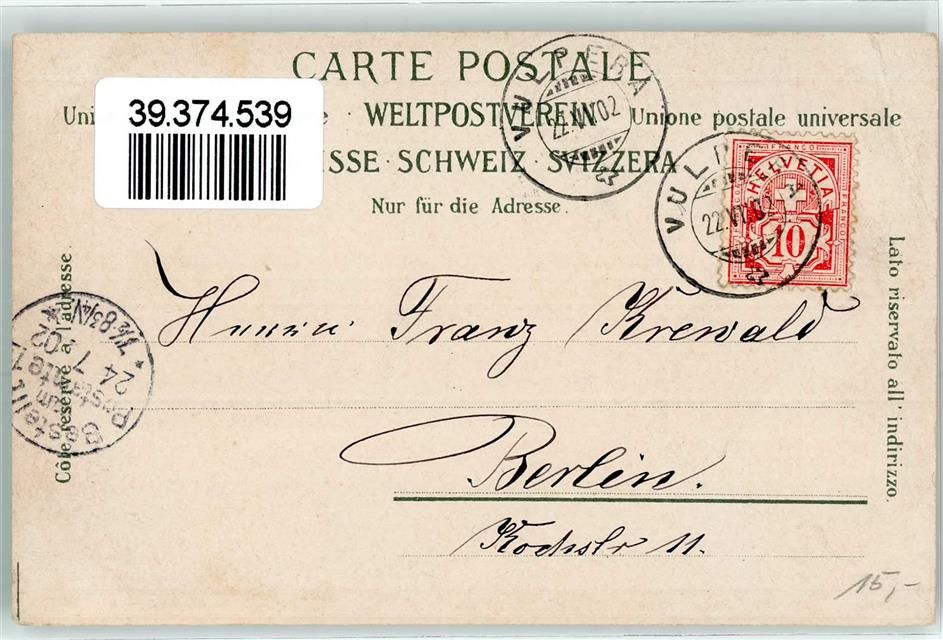 CARTE POSTALE
39.374.539
Uni WELTPOSTVEREIN Unione postale universale
SSE · SCHWEIZ · SVIZZERA
Nur für die Adresse.
VULPERA
22.VII.02
VULPERA
22.VII.02
FRANCO
HELVETIA
FRANCO
10
Côté réservé à l'adresse
Lato riservato all' indirizzo.
Herrn Franz Krewald
Bestellt
vom
Postamte
24 7 02
Berlin.
Kochstr 11.
15,-